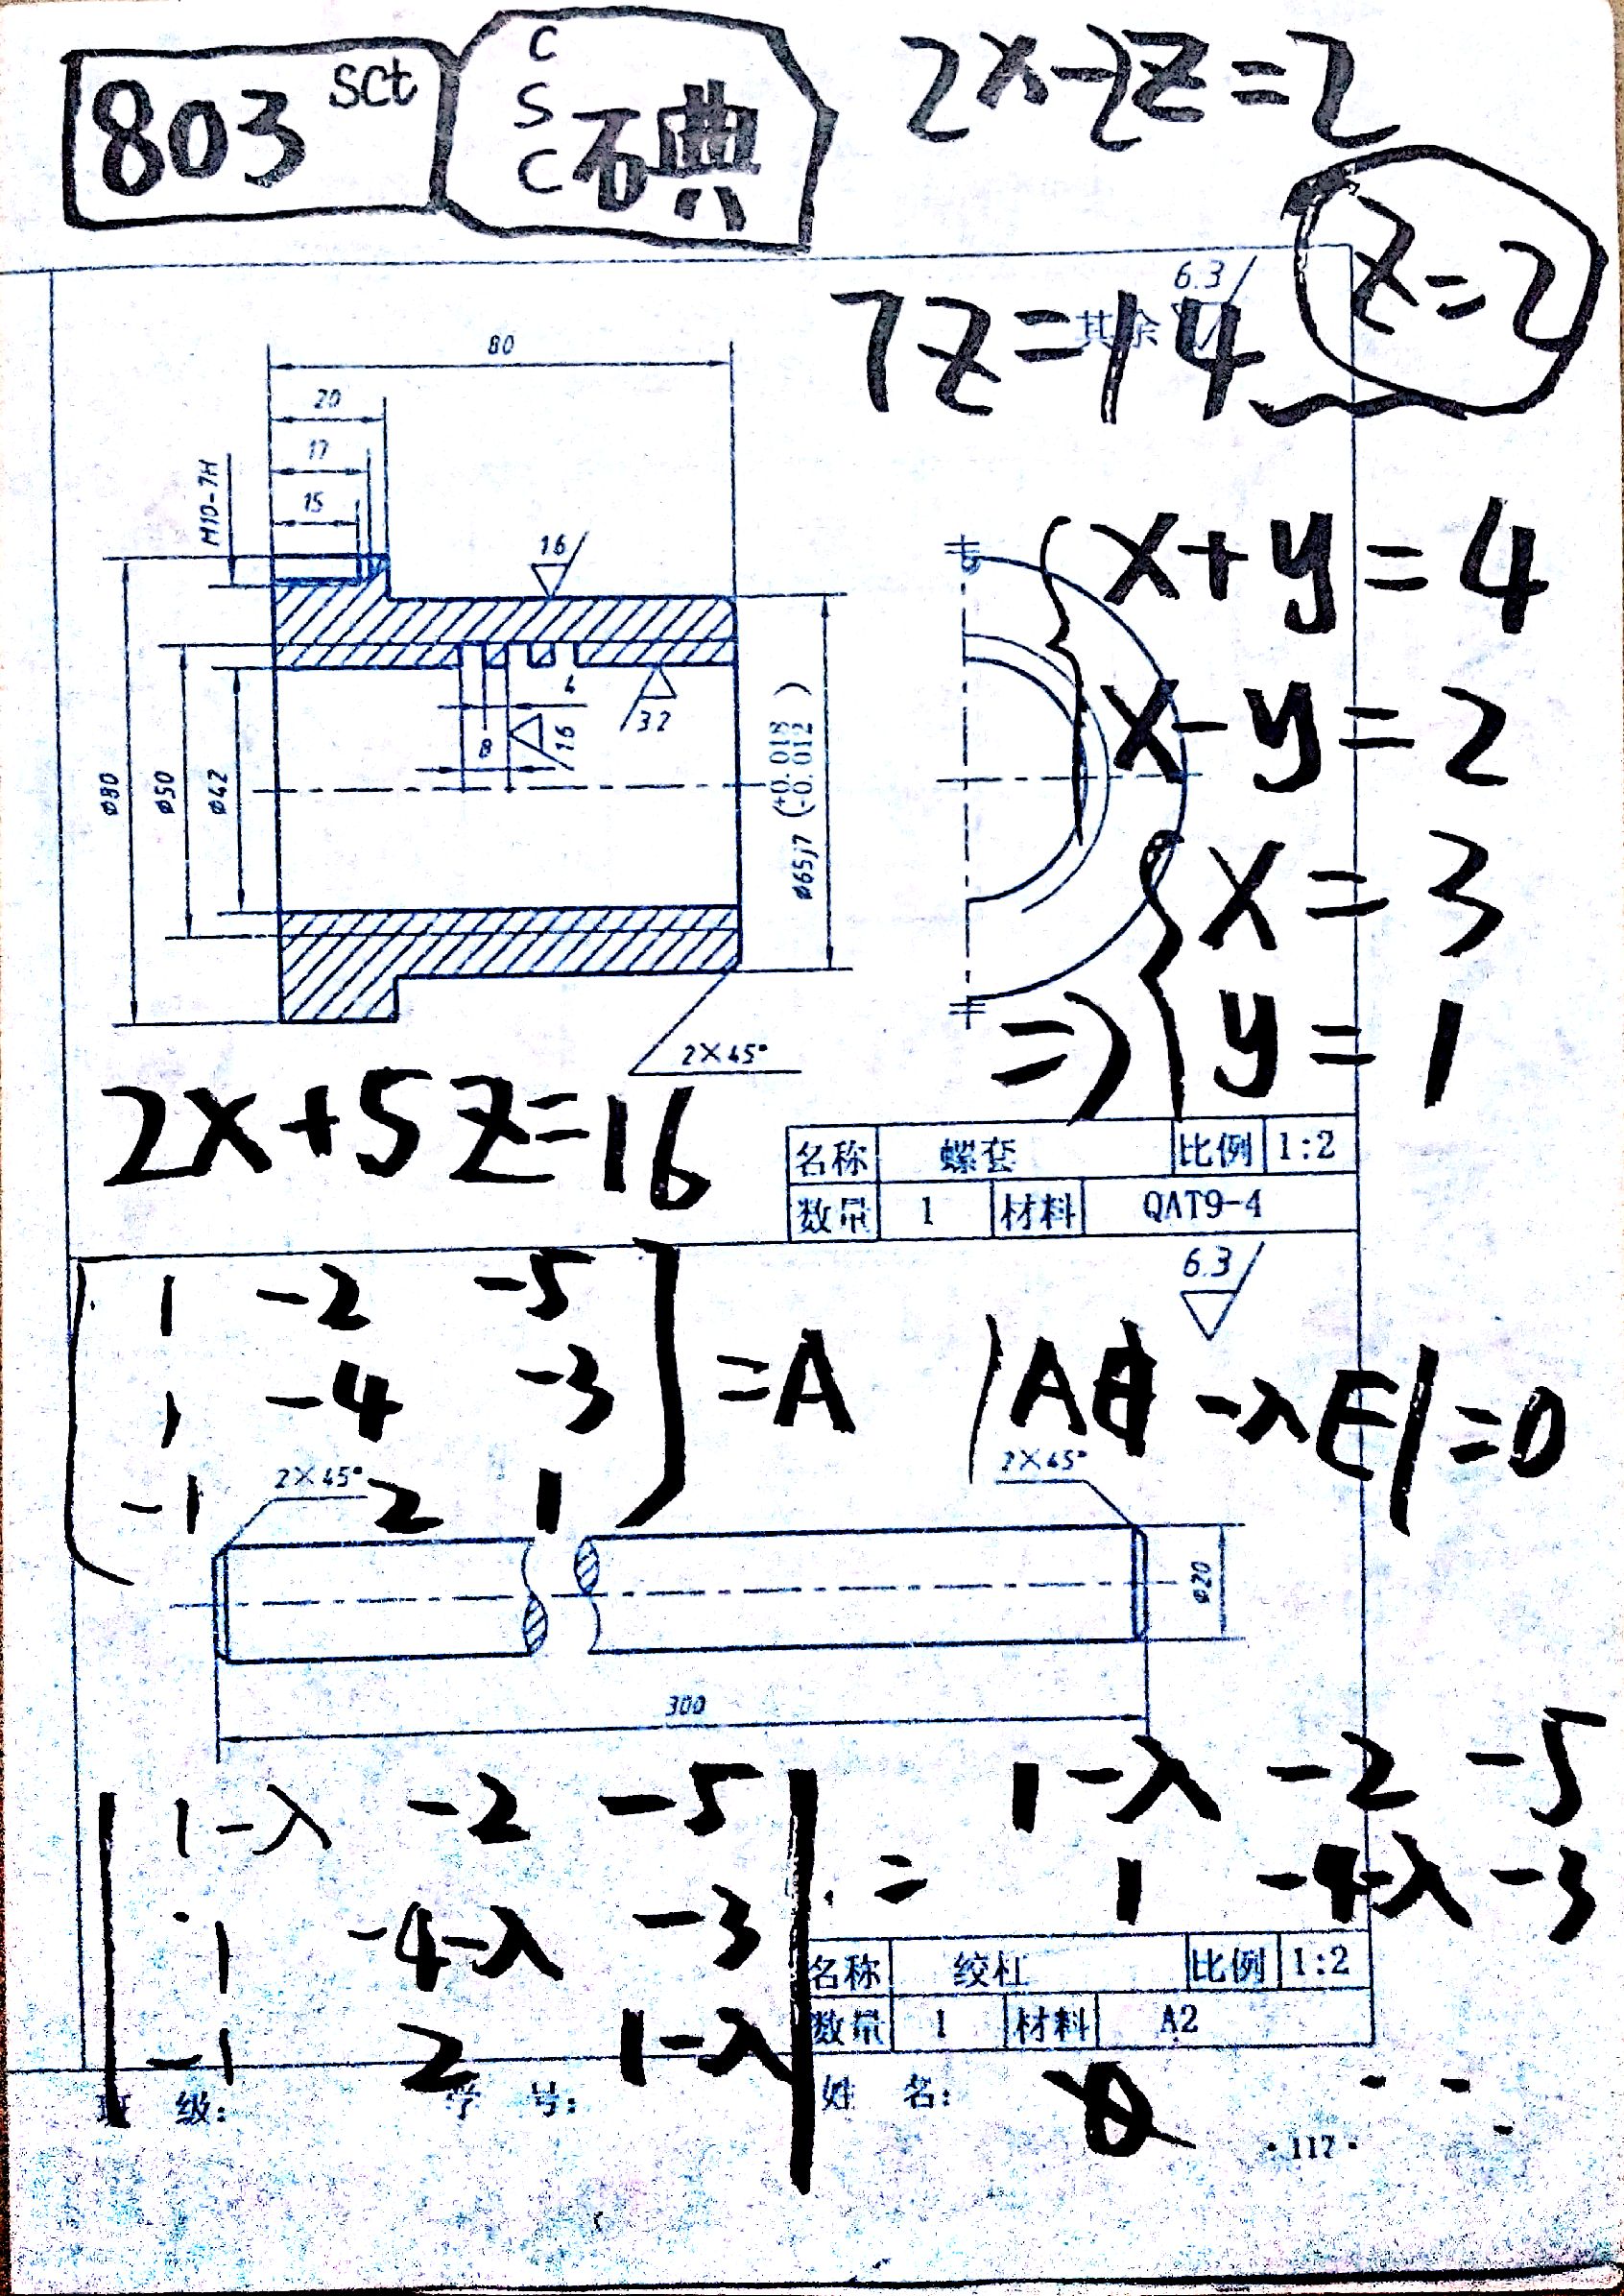 803 sct
C
S
C
石典
2x-2z=2
7z=14
z=2
其余 6.3
80
20
17
15
M10-7H
16
x+y=4
x-y=2
x=3
=> y=1
4
8
16
32
ø80
ø50
ø42
ø65j7 (+0.018 -0.012)
2×45°
2x+5z=16
名称 螺套 比例 1:2
数量 1 材料 QAT9-4
6.3
1 -2 -5
1 -4 -3
-1 2 1
=A
|A -λE|=0
2×45°
2×45°
ø20
300
1-λ -2 -5
1 -4-λ -3
-1 2 1-λ
= 1-λ -2 -5
1 -4-λ -3
名称 绞杠 比例 1:2
数量 1 材料 A2
班 级: 学 号: 姓 名:
·117·